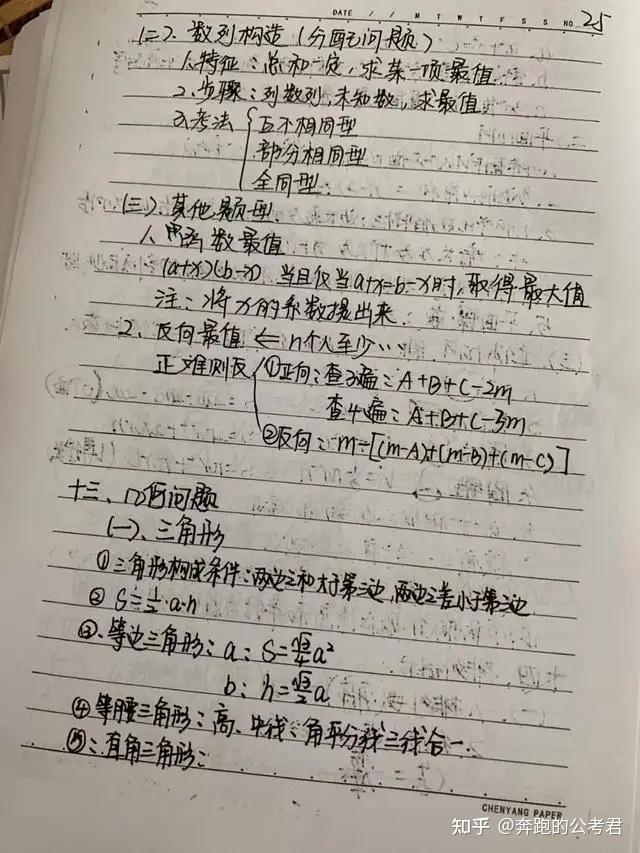 DATE / / M T W T F S S NO. 25
(二). 数列构造(分配问题)
1. 特征:总和一定,求某一项最值.
2. 步骤:列数列,未知数,求最值
3. 考法 互不相同型
部分相同型
全同型.
(三). 其他题型
1. 函数最值
(a+x)(b-x) 当且仅当a+x=b-x时,取得最大值
注:将x的系数提出来.
2. 反向最值 ⇐ n个人至少…
正难则反 ①正向:查3遍:A+B+C-2m
查4遍:A+B+C-3m
②反向:m-[(m-A)+(m-B)+(m-C)]
十三、几何问题
(一)、三角形
①三角形构成条件:两边之和大于第三边,两边之差小于第三边
② S=½·a·h
③、等边三角形:a:S=√3/4 a²
b:h=√3/2 a
④等腰三角形:高、中线、角平分线三线合一.
⑤:直角三角形:
CHENYANG PAPER
知乎 @奔跑的公考君